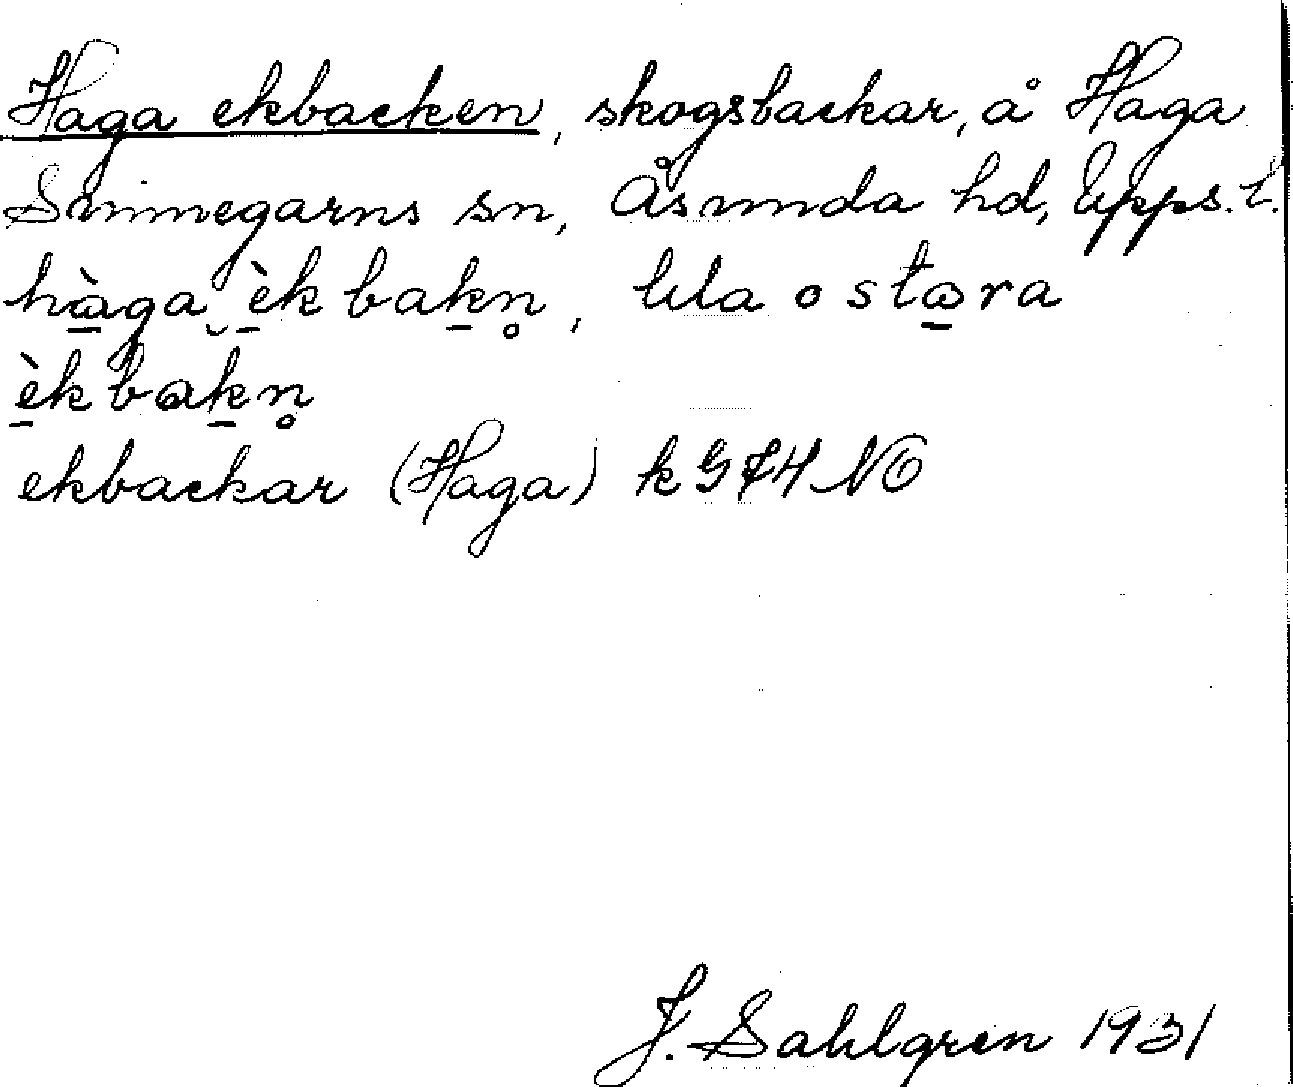 Haga ekbacken, skogsbackar, å Haga
Svinnegarns sn, Åsunda hd, Upps. l.
hàga èkbakn̥, lıla o stara
èkbakn̥
ekbackar (Haga) k G74 NO
J. Sahlgren 1931